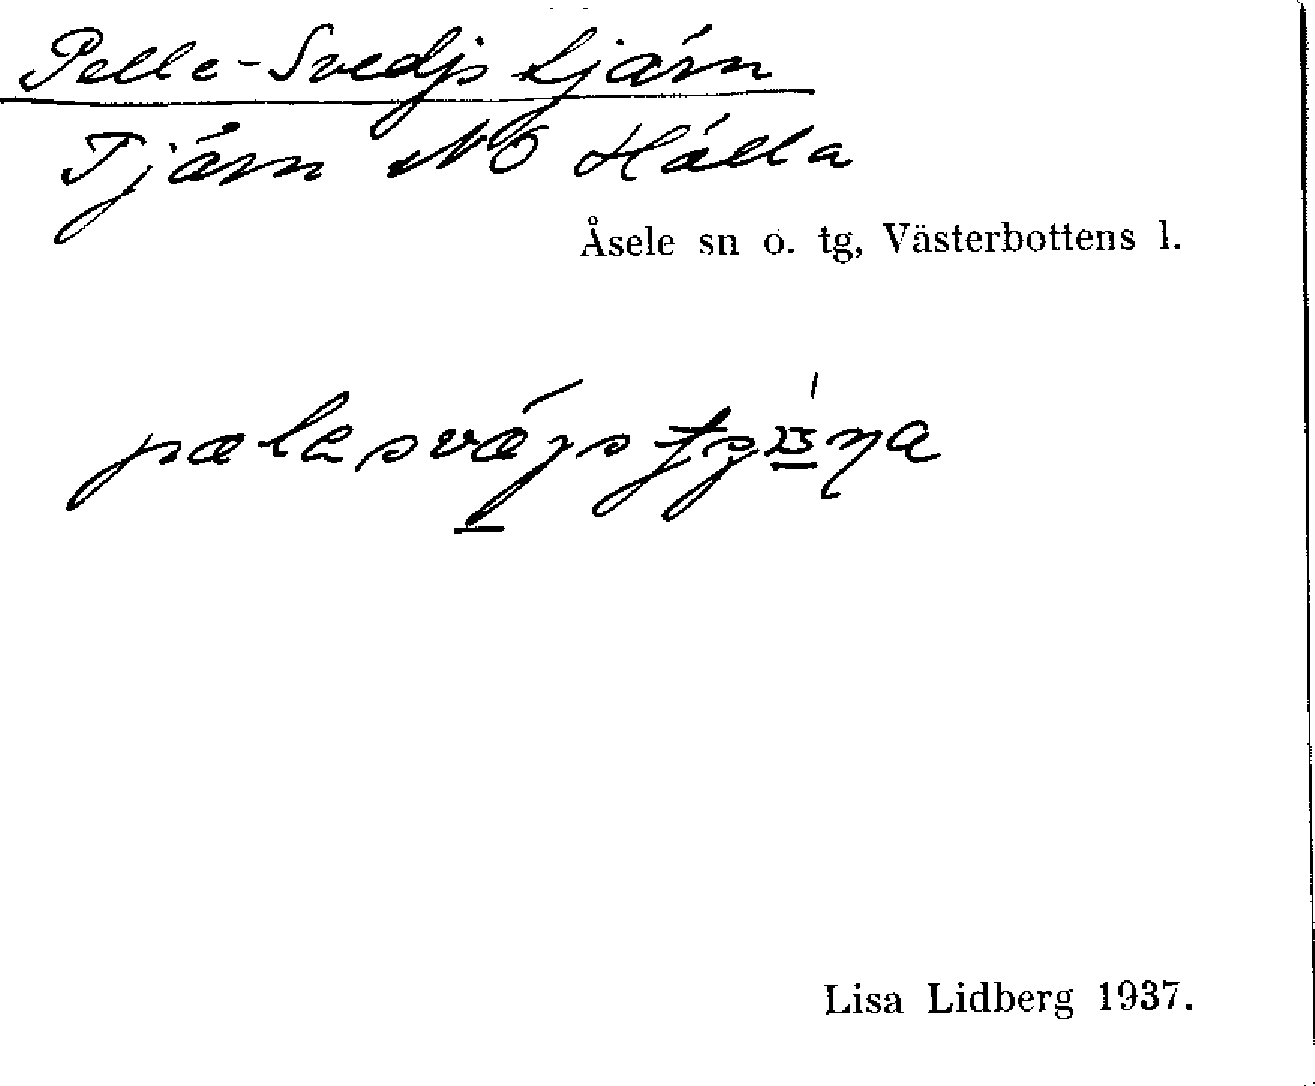 Pelle-Svedjstjärn
Tjärn NO Hälla
Åsele sn o. tg, Västerbottens l.
Lisa Lidberg 1937.